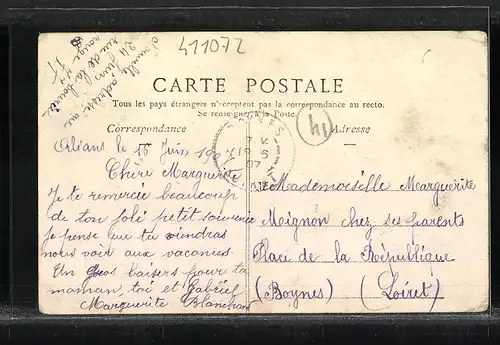 411072
Nouvelle adresse au
24 juin
rue de la
rouge n° 11
CARTE POSTALE
Tous les pays étrangers n'acceptent pas la correspondance au recto.
Se renseigner à la Poste.
Correspondance
Adresse
Orléans le 16 Juin 1907
Chère Marguerite
Je te remercie beaucoup
de ton joli petit souvenir
je pense que tu viendras
nous voir aux vacances
Un Gros baisers pour ta
maman, toi et Gabriel
Marguerite Blanchard
Mademoiselle Marguerite
Mignon chez ses parents
Place de la République
(Boynes) (Loiret)